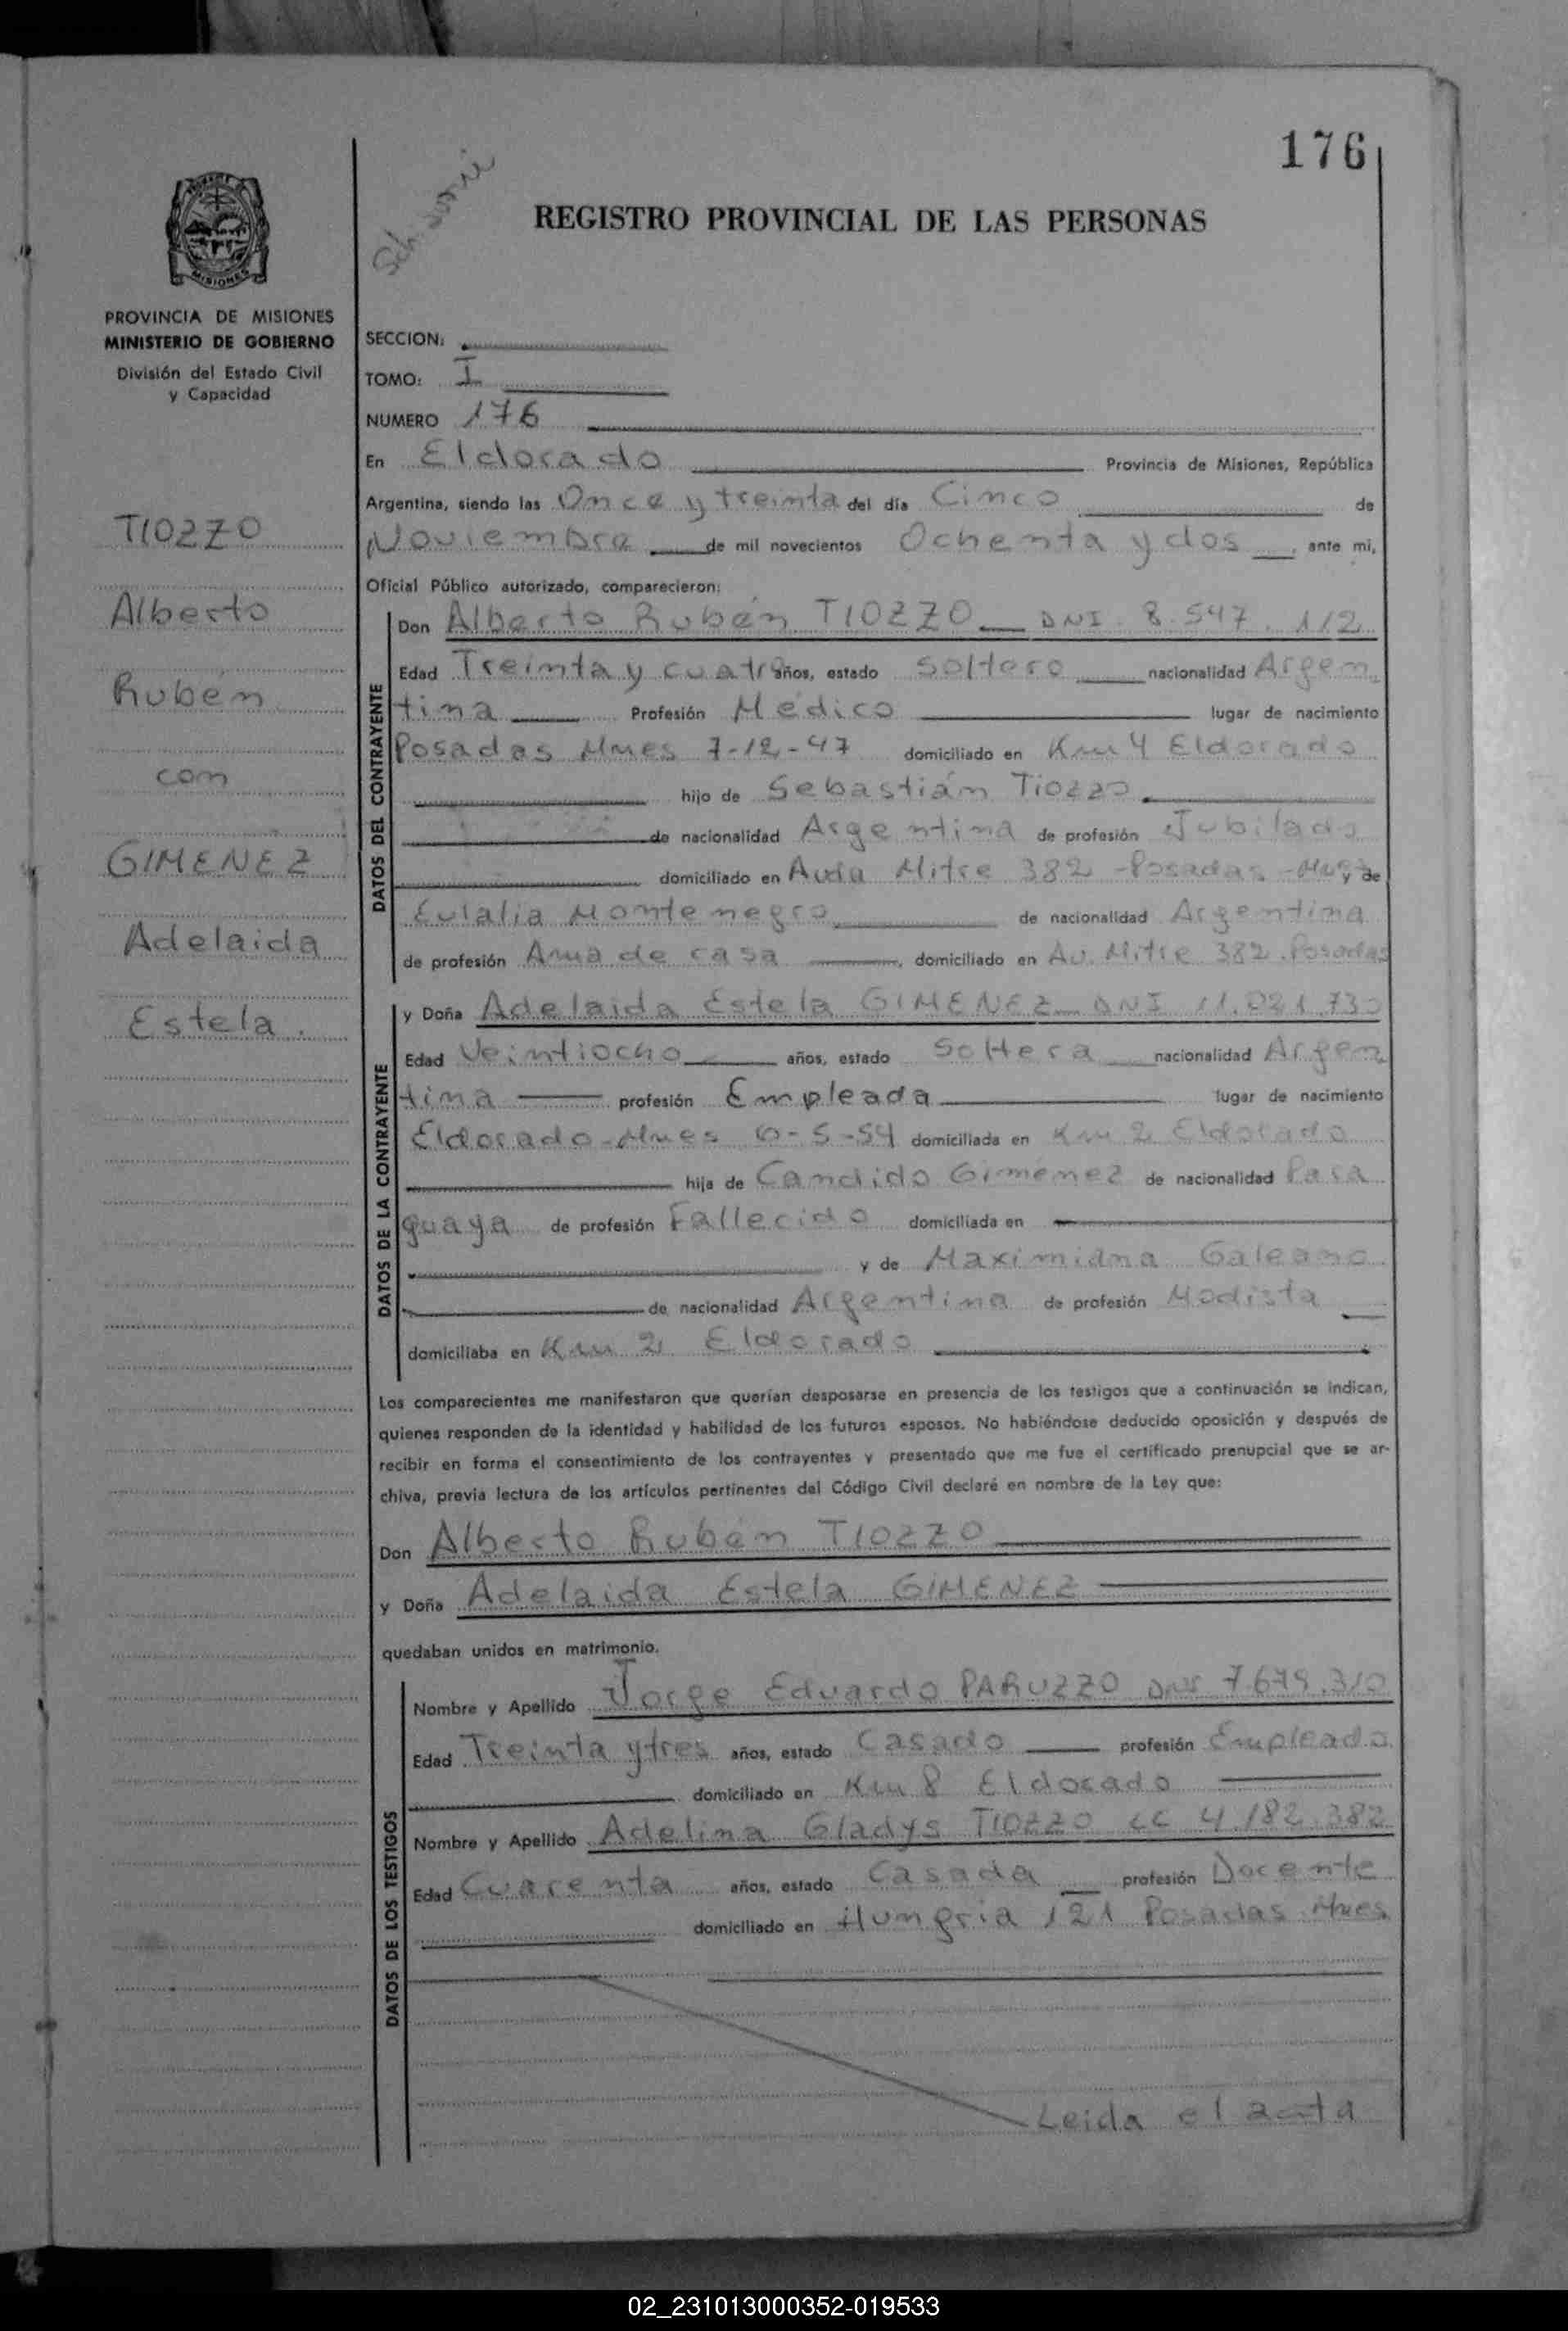 176
REGISTRO PROVINCIAL DE LAS PERSONAS
MISIONES
PROVINCIA DE MISIONES
MINISTERIO DE GOBIERNO
División del Estado Civil
y Capacidad
TIOZZO
Alberto
Rubén
con
GIMENEZ
Adelaida
Estela.
SECCION:
TOMO: I
NUMERO 176
En Eldorado Provincia de Misiones, República
Argentina, siendo las Once y treinta del día Cinco de
Noviembre de mil novecientos Ochenta y dos, ante mi,
Oficial Público autorizado, comparecieron:
DATOS DEL CONTRAYENTE
Don Alberto Rubén TIOZZO DNI 8.547.112
Edad Treinta y cuatro años, estado Soltero nacionalidad Argen
tina Profesión Médico lugar de nacimiento
Posadas Mnes 7-12-47 domiciliado en Km 4 Eldorado
hijo de Sebastián Tiozzo
de nacionalidad Argentina de profesión Jubilado
domiciliado en Avda Mitre 382 - Posadas - y de
Eulalia Montenegro de nacionalidad Argentina
de profesión Ama de casa, domiciliado en Av. Mitre 382 Posadas
DATOS DE LA CONTRAYENTE
y Doña Adelaida Estela GIMENEZ DNI 11.021.730
Edad Veintiocho años, estado Soltera nacionalidad Argen
tina profesión Empleada lugar de nacimiento
Eldorado - Mnes -5-54 domiciliada en Km 2 Eldorado
hija de Candido Gimenez de nacionalidad Para
guaya de profesión Fallecido domiciliada en
y de Maximiana Galeano
de nacionalidad Argentina de profesión Modista
domiciliaba en Km 2 Eldorado
Los comparecientes me manifestaron que querían desposarse en presencia de los testigos que a continuación se indican,
quienes responden de la identidad y habilidad de los futuros esposos. No habiéndose deducido oposición y después de
recibir en forma el consentimiento de los contrayentes y presentado que me fue el certificado prenupcial que se ar-
chiva, previa lectura de los artículos pertinentes del Código Civil declaré en nombre de la Ley que:
Don Alberto Rubén TIOZZO
y Doña Adelaida Estela GIMENEZ
quedaban unidos en matrimonio.
DATOS DE LOS TESTIGOS
Nombre y Apellido Jorge Eduardo PARUZZO DNI 7.679.310
Edad Treinta y tres años, estado Casado profesión Empleado
domiciliado en Km 8 Eldorado
Nombre y Apellido Adelina Gladys TIOZZO LC 4.182.382
Edad Cuarenta años, estado Casada profesión Docente
domiciliado en Hungria 121 Posadas Mnes
Leida el acta
02_231013000352-019533